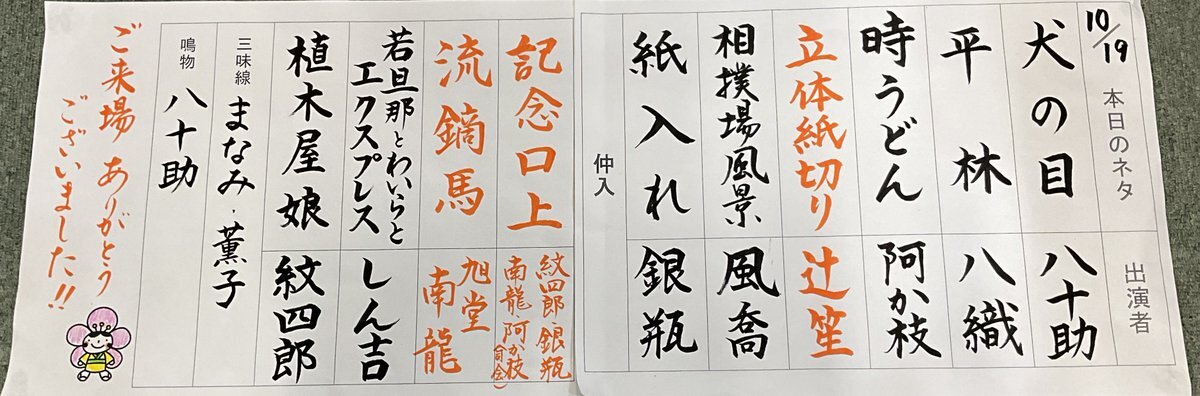 10/19
本日のネタ 出演者
犬の目 八十助
平林 八織
時うどん 阿か枝
立体紙切り 辻笙
相撲場風景 風喬
紙入れ 銀瓶
仲入
記念口上 紋四郎・銀瓶
南龍 阿か枝(司会)
流鏑馬 旭堂
南龍
若旦那とわいらと
エクスプレス しん吉
植木屋娘 紋四郎
三味線 まなみ・薫子
鳴物 八十助
ご来場 ありがとう
ございました!!